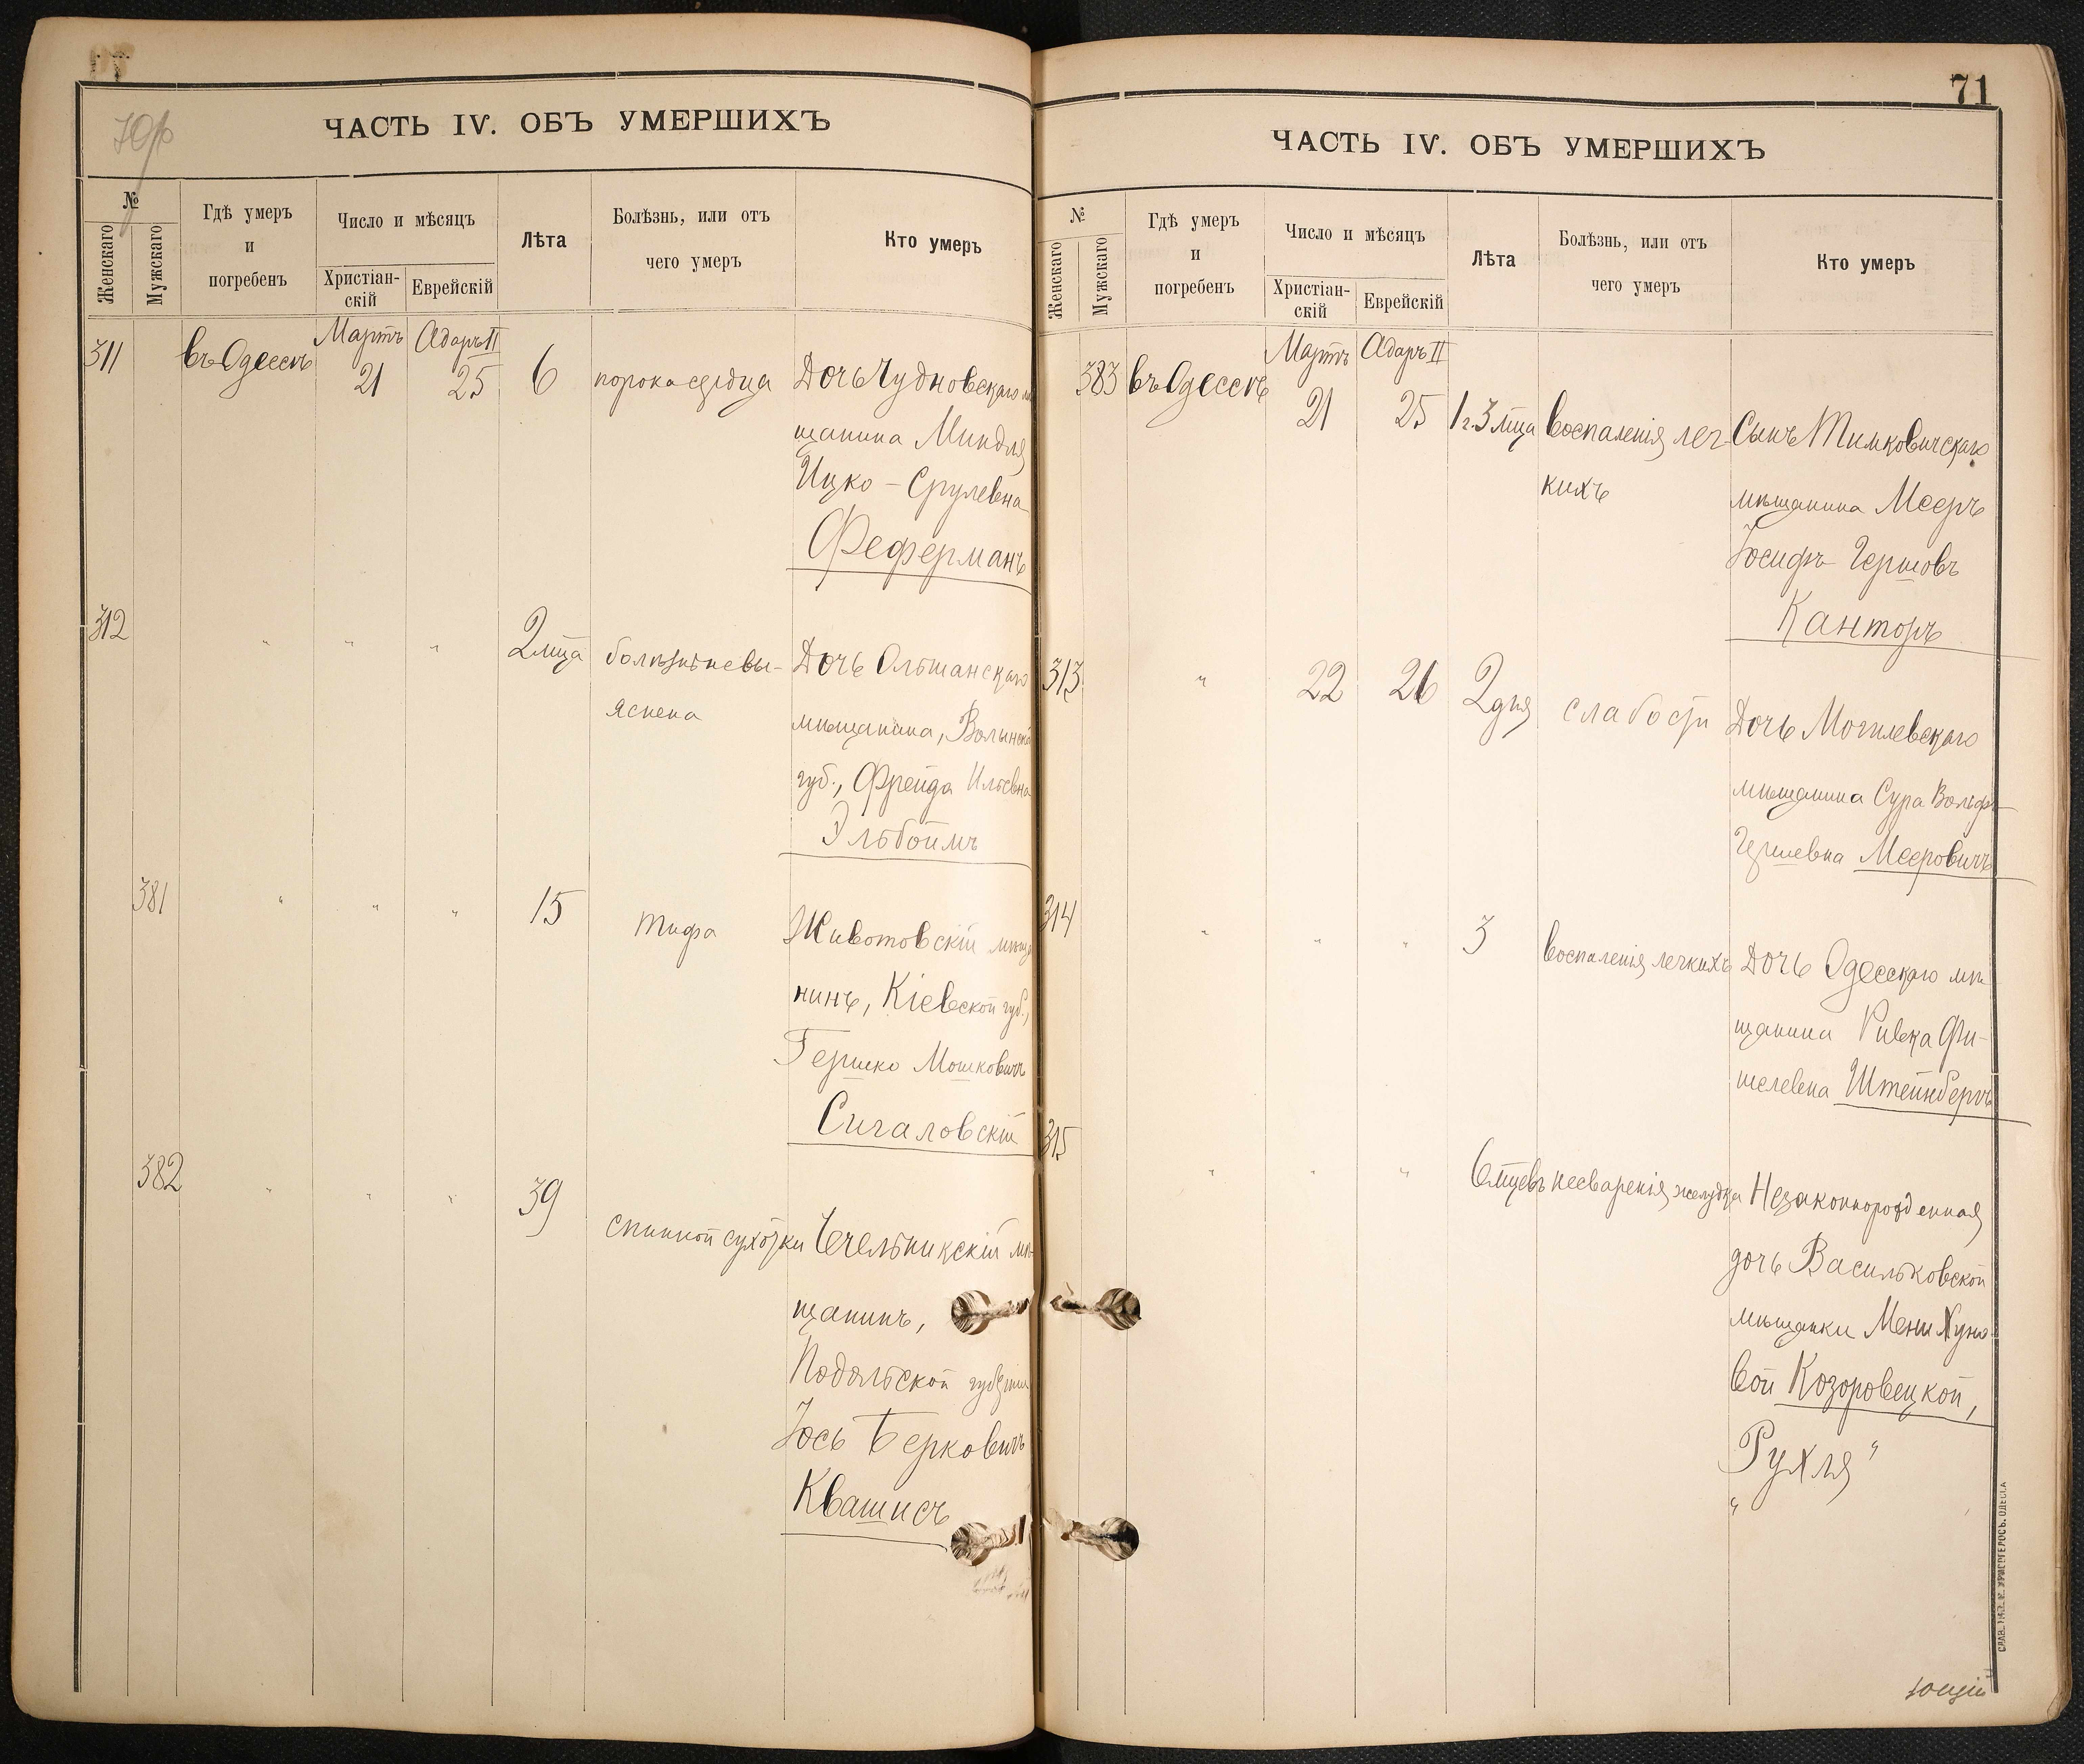 70об
ЧАСТЬ IV. ОБЪ УМЕРШИХЪ
№
Женскаго
Мужскаго
Гдѣ умеръ
и
погребенъ
Число и мѣсяцъ
Христіан-
скій
Еврейскій
Лѣта
Болѣзнь, или отъ
чего умеръ
Кто умеръ
311
въ Одессѣ
Мартъ
21
Адаръ II
25
6
порока сердца
Дочь Чудновскаго мѣ
щанина Миндля
Ицко - Срулевна
Феферманъ
312
"
"
"
2 мца
болѣзнь невы-
яснена
Дочь Ольшанскаго
мѣщанина, Волынской
губ., Фрейда Ильевна
Эльбоймъ
381
"
"
"
15
тифа
Животовскій мѣща
нинъ, Кіевской губ.,
Гершко Мошковичъ
Сигаловскій
382
"
"
"
39
спинной сухотки
Чечельникскій мѣ-
щанинъ,
Подольской губерніи
Іось Берковичъ
Квашисъ
71
ЧАСТЬ IV. ОБЪ УМЕРШИХЪ
№
Женскаго
Мужскаго
Гдѣ умеръ
и
погребенъ
Число и мѣсяцъ
Христіан-
скій
Еврейскій
Лѣта
Болѣзнь, или отъ
чего умеръ
Кто умеръ
383
въ Одессѣ
Мартъ
21
Адаръ II
25
1 г. 3 мца
воспаленія лег-
кихъ
Сынъ Тимковичскаго
мѣщанина Мееръ
Іосифъ Гершовъ
Канторъ
313
"
22
26
2 дня
слабости
Дочь Могилевскаго
мѣщанина Сура Вольфъ
Гершевна Мееровичъ
314
"
"
"
3
воспаленія легкихъ
Дочь Одесскаго мѣ
щанина Ривка Фи-
шелевна Штейнбергъ
315
"
"
"
6 мцевъ
несваренія желудка
Незаконнорожденная
дочь Васильковской
мѣщанки Мени Хуно
вой Козоровецкой,
"Рухля"